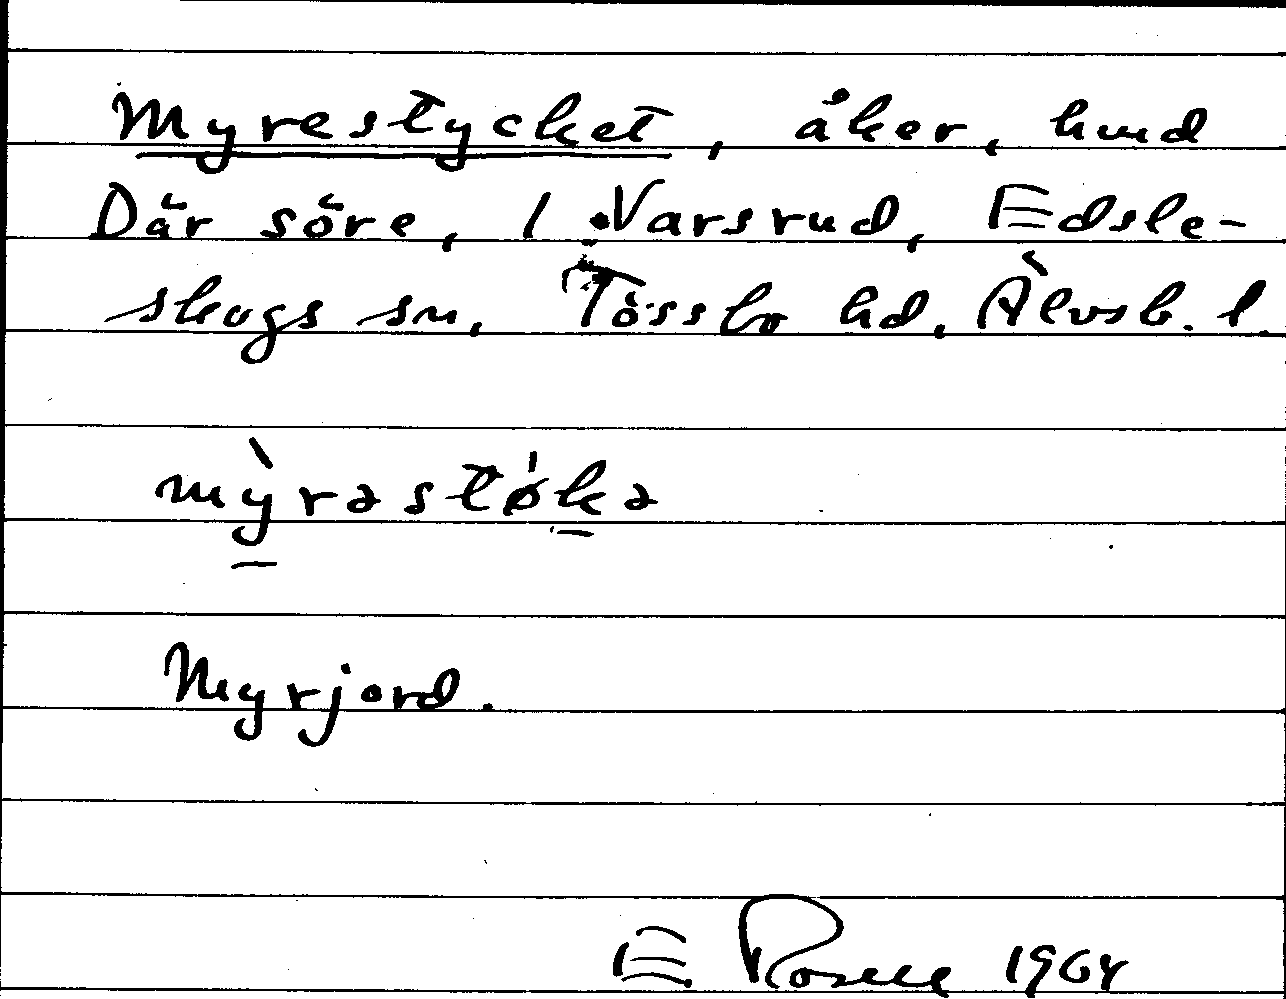 Myrestycket, åker, hmd
Där söre, 1 Varsrud, Edsle-
skogs sn, Tössbo hd, Älvsb. l.
mỳ̱rəstǿḵə
Myrjord.
E. Rosell 1964